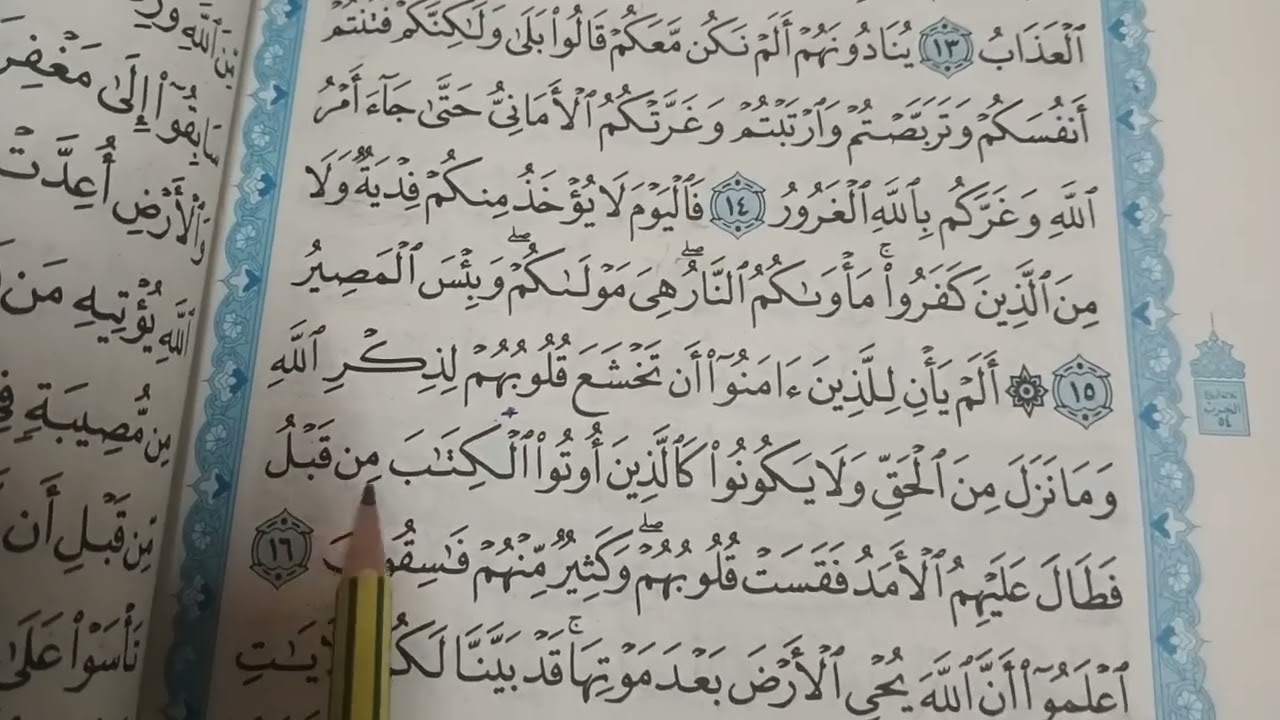 ٱلْعَذَابُ ١٣ يُنَادُونَهُمْ أَلَمْ نَكُن مَّعَكُمْ قَالُوا۟ بَلَىٰ وَلَٰكِنَّكُمْ فَتَنتُمْ
أَنفُسَكُمْ وَتَرَبَّصْتُمْ وَٱرْتَبْتُمْ وَغَرَّتْكُمُ ٱلْأَمَانِىُّ حَتَّىٰ جَآءَ أَمْرُ
ٱللَّهِ وَغَرَّكُم بِٱللَّهِ ٱلْغَرُورُ ١٤ فَٱلْيَوْمَ لَا يُؤْخَذُ مِنكُمْ فِدْيَةٌ وَلَا
مِنَ ٱلَّذِينَ كَفَرُوا۟ ۚ مَأْوَىٰكُمُ ٱلنَّارُ ۖ هِىَ مَوْلَىٰكُمْ ۖ وَبِئْسَ ٱلْمَصِيرُ
١٥ ۞ أَلَمْ يَأْنِ لِلَّذِينَ ءَامَنُوٓا۟ أَن تَخْشَعَ قُلُوبُهُمْ لِذِكْرِ ٱللَّهِ
وَمَا نَزَلَ مِنَ ٱلْحَقِّ وَلَا يَكُونُوا۟ كَٱلَّذِينَ أُوتُوا۟ ٱلْكِتَٰبَ مِن قَبْلُ
فَطَالَ عَلَيْهِمُ ٱلْأَمَدُ فَقَسَتْ قُلُوبُهُمْ ۖ وَكَثِيرٌ مِّنْهُمْ فَٰسِقُونَ ١٦
ٱعْلَمُوٓا۟ أَنَّ ٱللَّهَ يُحْىِ ٱلْأَرْضَ بَعْدَ مَوْتِهَا ۚ قَدْ بَيَّنَّا لَكُمُ ٱلْءَايَٰتِ
الحزب
٥٤
مِّنَ ٱللَّهِ
سَابِقُوٓا۟ إِلَىٰ
وَٱلْأَرْضِ أُعِدَّتْ
ٱللَّهِ يُؤْتِيهِ مَن
مِن مُّصِيبَةٍ فِى
مِّن قَبْلِ أَن
تَأْسَوْا۟ عَلَىٰ